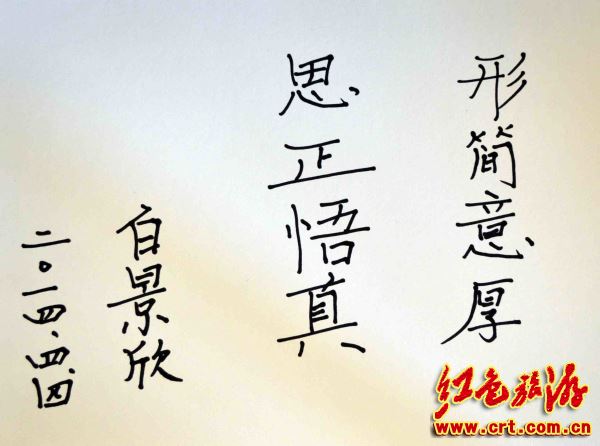 形简意厚
思正悟真
白景欣
二〇一四.四.四
红色旅游
www.crt.com.cn